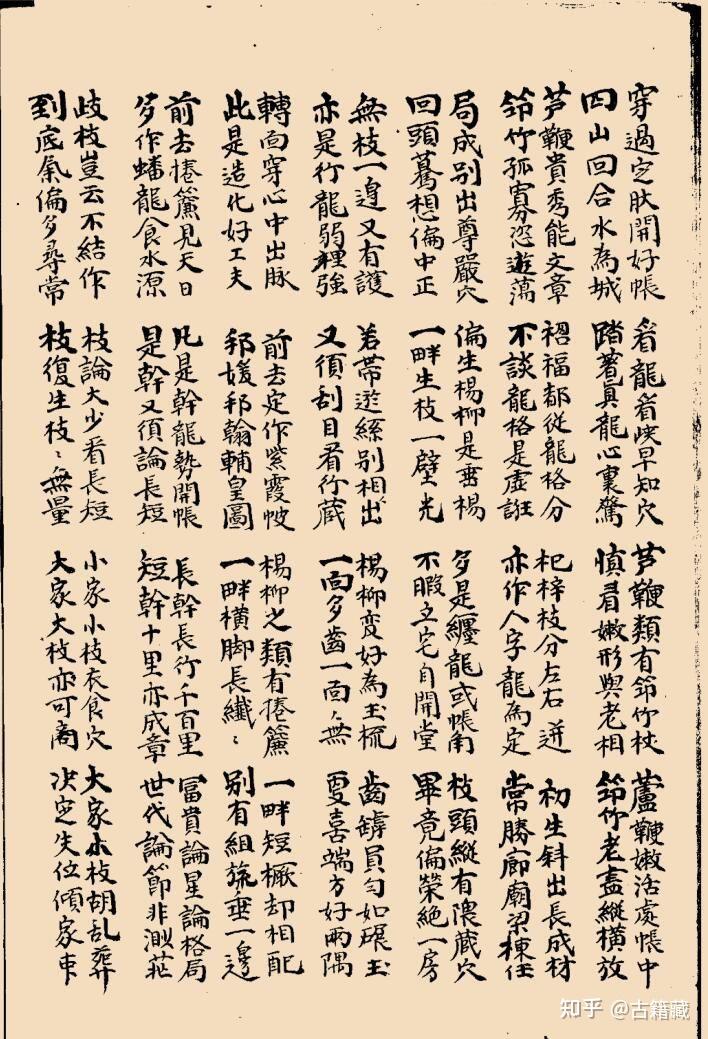 穿過定肰開好帳
四山回合水為城
看龍看峽早知穴
踏著真龍心裏驚
芦鞭類有笻竹杖
慎看嫩形與老相
蘆鞭嫩活處帳中
笻竹老盡縱橫放
芦鞭貴秀能文章
笻竹孤寡恣遊蕩
禍福都從龍格分
不談龍格是虛誑
杞梓枝分左右迸
亦作人字龍為定
初生斜出長成材
常勝廊廟梁棟任
局成别出尊嚴穴
回頭驀想偏中正
偏生楊柳是垂楊
一畔生枝一壁光
多是纏龍或帳角
不暇立宅自開堂
枝頭縱有隈藏穴
畢竟偏榮絕一房
無枝一邊又有護
亦是行龍弱裡強
若帶遊絲别相出
又須刮目看行藏
楊柳变好為玉梳
一面多齒一面無
齒罅員勻如碾玉
更喜端方好兩隅
轉面穿心中出脉
此是造化好工夫
前去定作紫霞帔
邦媛邦翰輔皇圖
楊柳之類有捲簾
一畔橫脚長纖〻
一畔短橛却相配
别有組旒垂一邊
前去捲簾見天日
多作蟠龍食水源
凡是幹龍勢開帳
是幹又須論長短
長幹長行千百里
短幹十里亦成章
富貴論星論格局
世代論節非渺茫
歧枝豈云不結作
到底氣偏多尋常
枝論大少看長短
枝復生枝〻無量
小家小枝衣食穴
大家大枝亦可商
大家小枝胡乱葬
决定失位傾家
知乎 @古籍藏